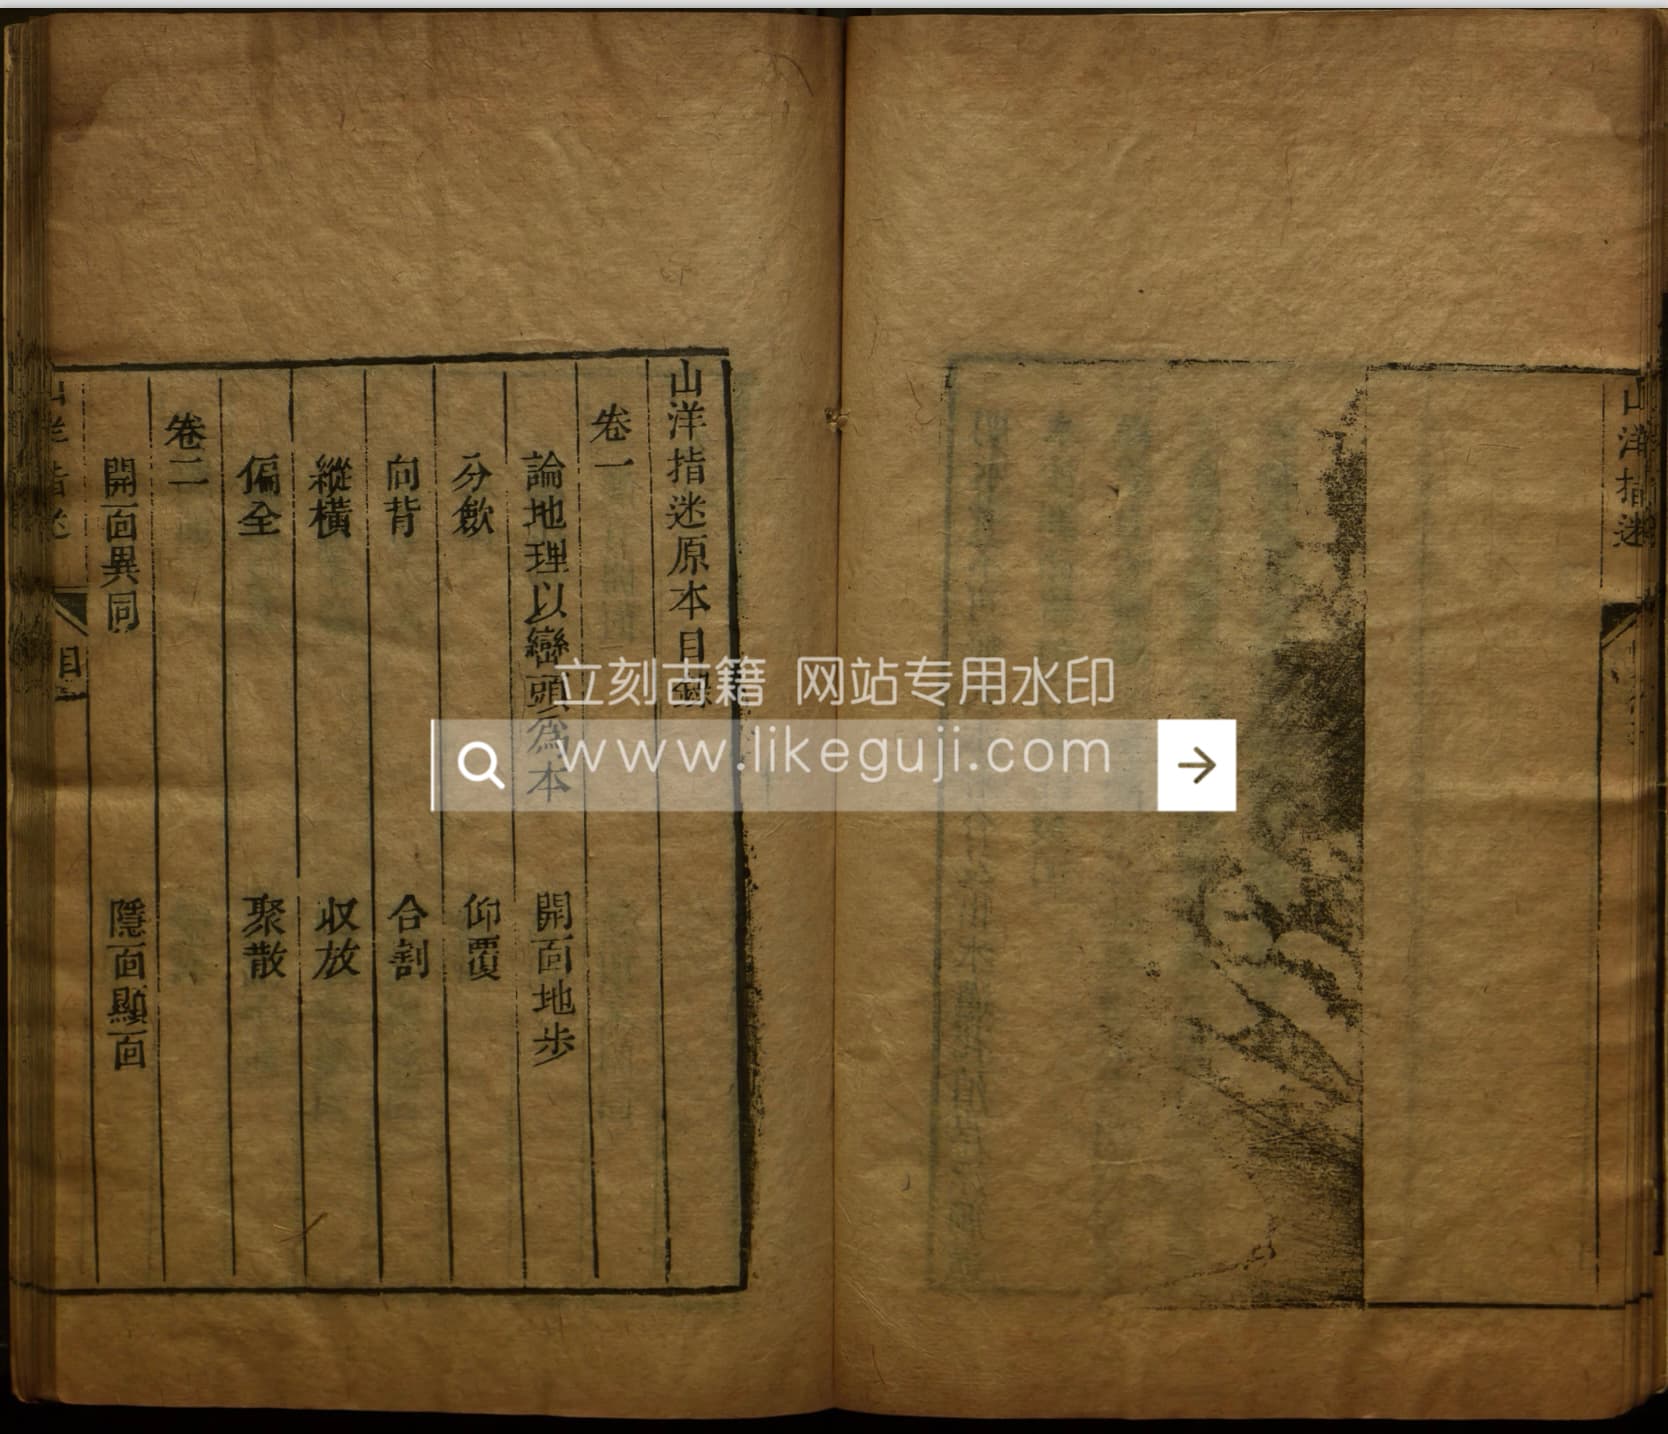 山洋指迷
山洋指迷原本目錄
卷一
論地理以巒頭為本
開面地步
分斂
仰覆
向背
合割
縱橫
収放
偏全
聚散
卷二
開面異同
隱面顯面
山洋指迷
目
立刻古籍 网站专用水印
www.likeguji.com